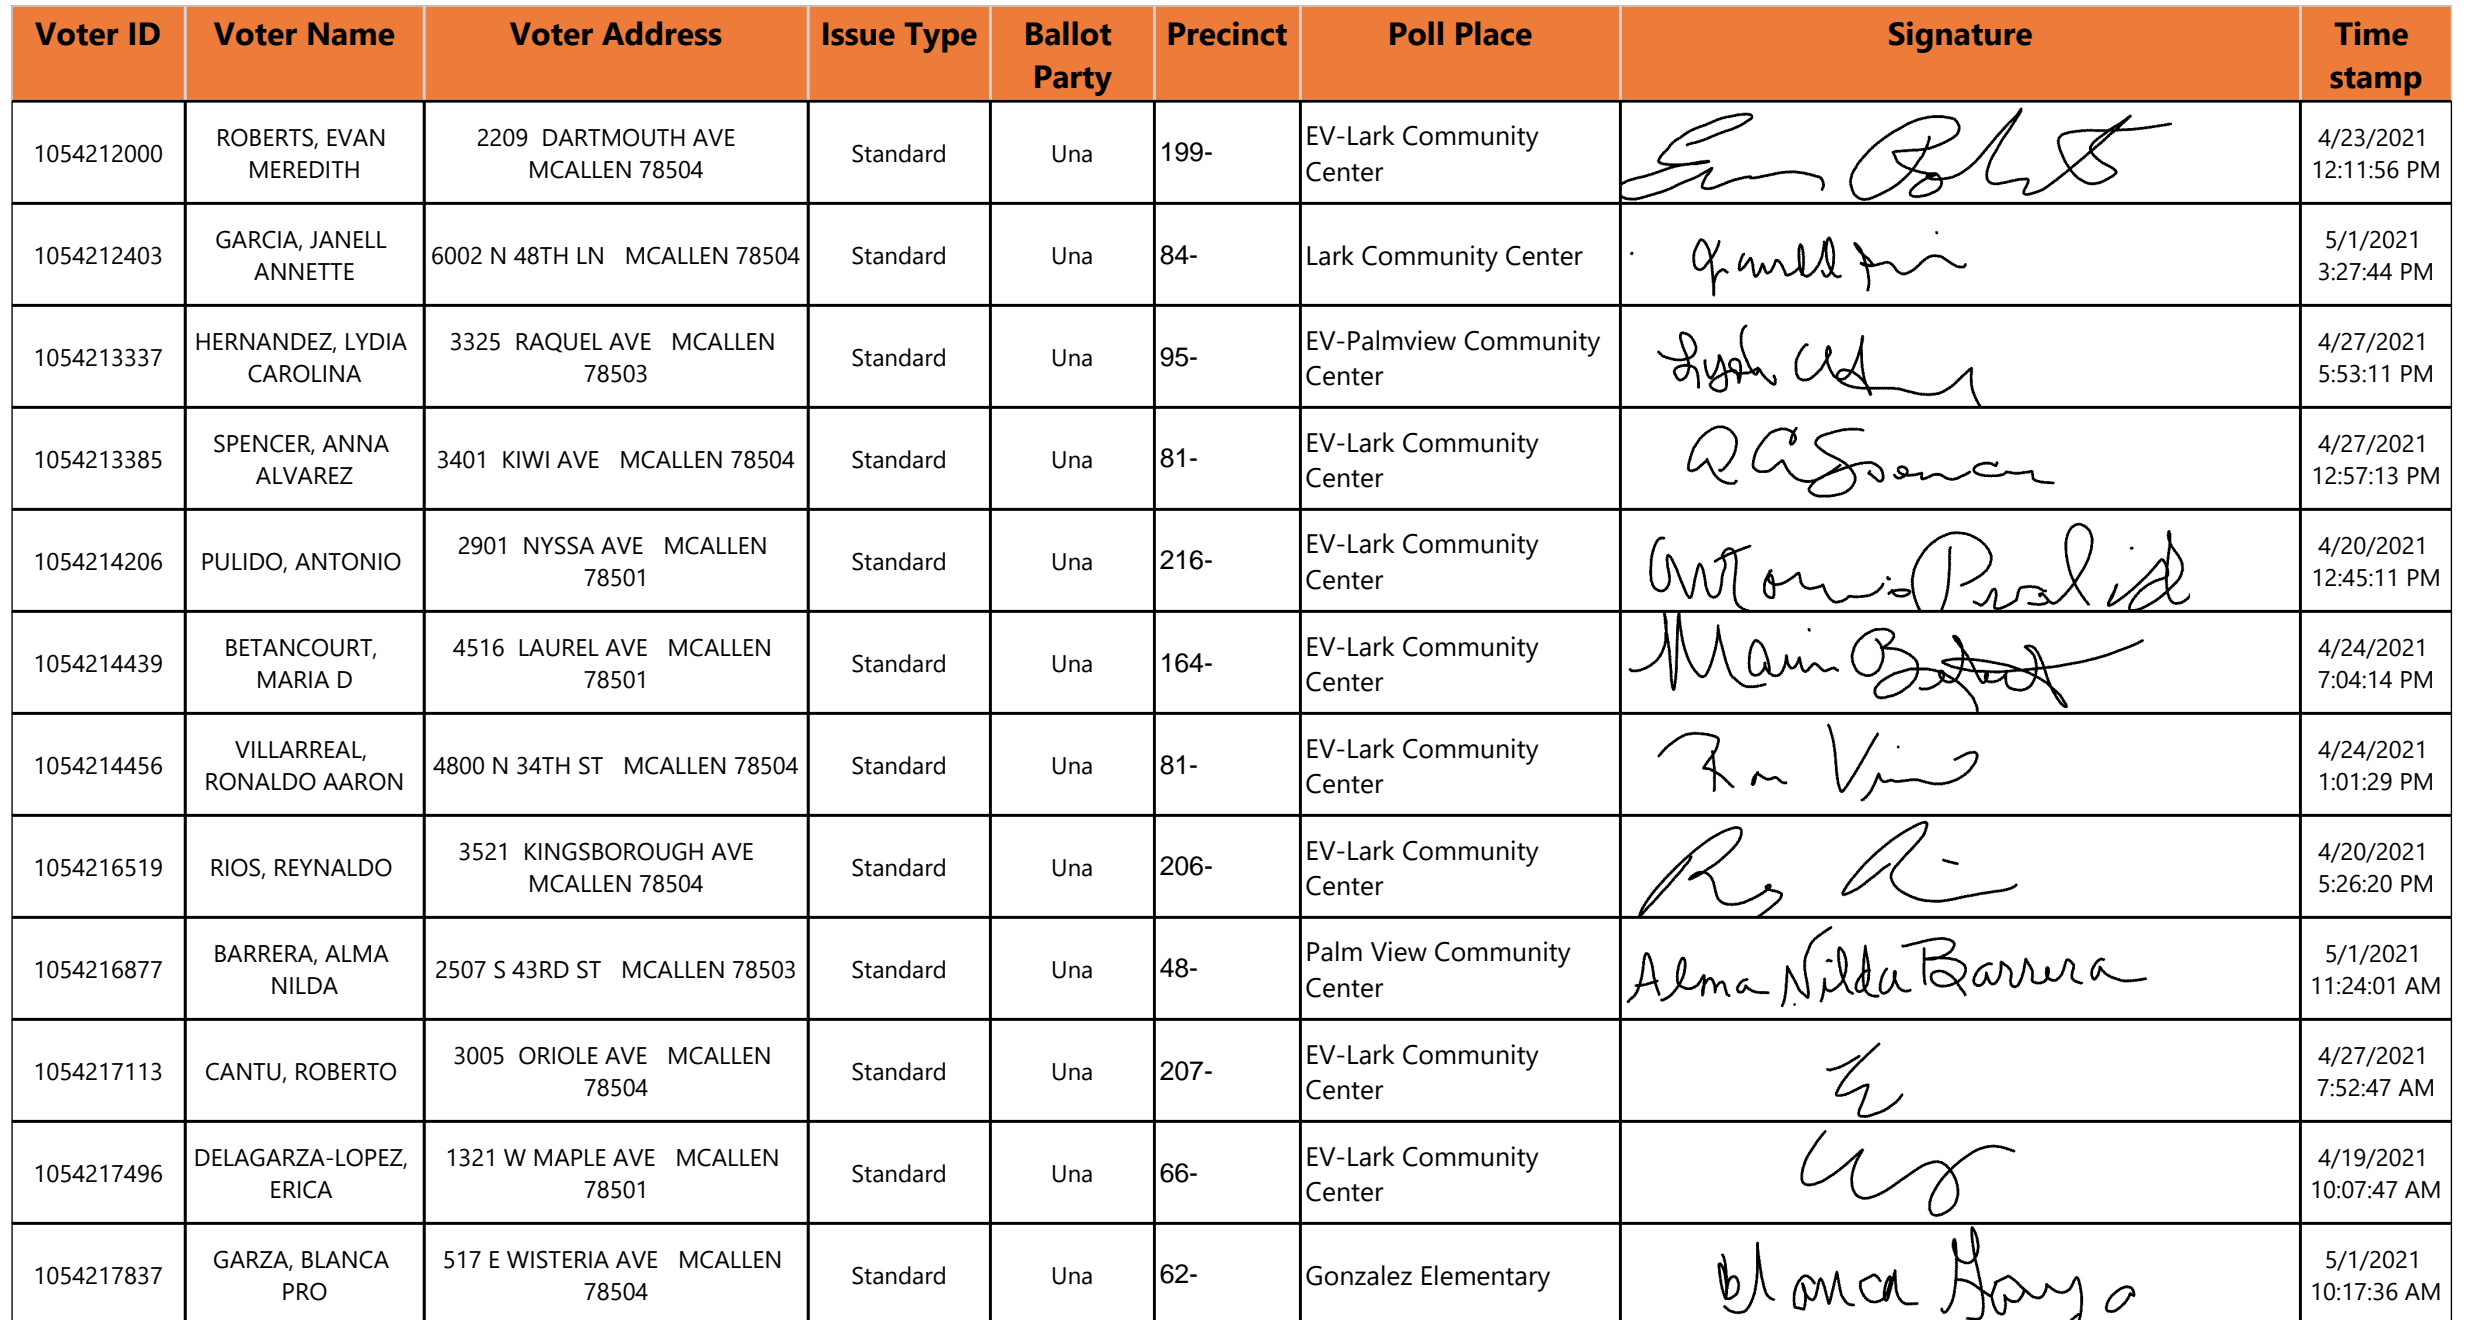 Voter ID Voter Name Voter Address Issue Type Ballot Party Precinct Poll Place Signature Time stamp
1054212000 ROBERTS, EVAN MEREDITH 2209 DARTMOUTH AVE MCALLEN 78504 Standard Una 199- EV-Lark Community Center 4/23/2021 12:11:56 PM
1054212403 GARCIA, JANELL ANNETTE 6002 N 48TH LN MCALLEN 78504 Standard Una 84- Lark Community Center 5/1/2021 3:27:44 PM
1054213337 HERNANDEZ, LYDIA CAROLINA 3325 RAQUEL AVE MCALLEN 78503 Standard Una 95- EV-Palmview Community Center 4/27/2021 5:53:11 PM
1054213385 SPENCER, ANNA ALVAREZ 3401 KIWI AVE MCALLEN 78504 Standard Una 81- EV-Lark Community Center 4/27/2021 12:57:13 PM
1054214206 PULIDO, ANTONIO 2901 NYSSA AVE MCALLEN 78501 Standard Una 216- EV-Lark Community Center Antonio Pulido 4/20/2021 12:45:11 PM
1054214439 BETANCOURT, MARIA D 4516 LAUREL AVE MCALLEN 78501 Standard Una 164- EV-Lark Community Center Maria 4/24/2021 7:04:14 PM
1054214456 VILLARREAL, RONALDO AARON 4800 N 34TH ST MCALLEN 78504 Standard Una 81- EV-Lark Community Center 4/24/2021 1:01:29 PM
1054216519 RIOS, REYNALDO 3521 KINGSBOROUGH AVE MCALLEN 78504 Standard Una 206- EV-Lark Community Center 4/20/2021 5:26:20 PM
1054216877 BARRERA, ALMA NILDA 2507 S 43RD ST MCALLEN 78503 Standard Una 48- Palm View Community Center Alma Nilda Barrera 5/1/2021 11:24:01 AM
1054217113 CANTU, ROBERTO 3005 ORIOLE AVE MCALLEN 78504 Standard Una 207- EV-Lark Community Center 4/27/2021 7:52:47 AM
1054217496 DELAGARZA-LOPEZ, ERICA 1321 W MAPLE AVE MCALLEN 78501 Standard Una 66- EV-Lark Community Center 4/19/2021 10:07:47 AM
1054217837 GARZA, BLANCA PRO 517 E WISTERIA AVE MCALLEN 78504 Standard Una 62- Gonzalez Elementary Blanca Garza 5/1/2021 10:17:36 AM